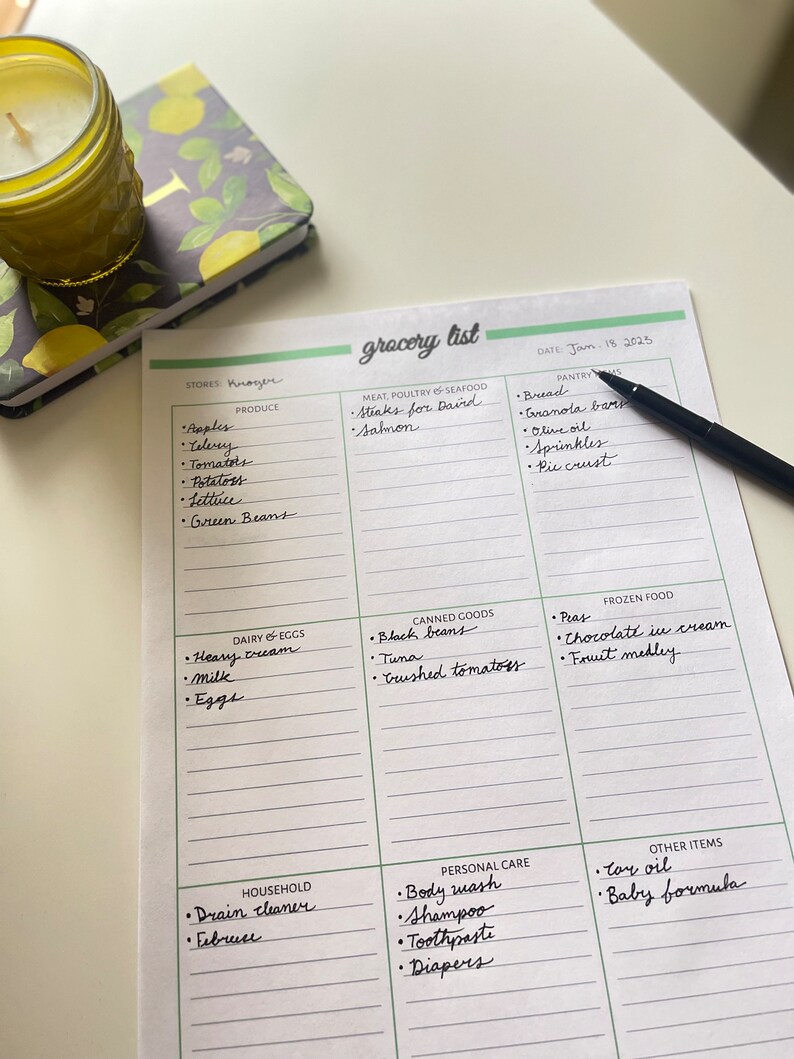 grocery list
STORES: Kroger
DATE: Jan. 18 2023
PRODUCE
• Apples
• Celery
• Tomatoes
• Potatoes
• Lettuce
• Green Beans
MEAT, POULTRY & SEAFOOD
• Steaks for David
• Salmon
PANTRY
• Bread
• Granola bars
• Olive oil
• Sprinkles
• Pie crust
DAIRY & EGGS
• Heavy cream
• Milk
• Eggs
CANNED GOODS
• Black beans
• Tuna
• Crushed tomatoes
FROZEN FOOD
• Peas
• Chocolate ice cream
• Fruit medley
HOUSEHOLD
• Drain cleaner
• Febreze
PERSONAL CARE
• Body wash
• Shampoo
• Toothpaste
• Diapers
OTHER ITEMS
• Car oil
• Baby formula